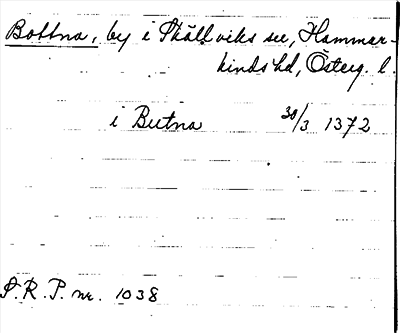 Bottna, by i Skällviks sn, Hammar-
kinds hd, Österg. l.
i Butna 30/3 1372
S.R.P. nr. 1038